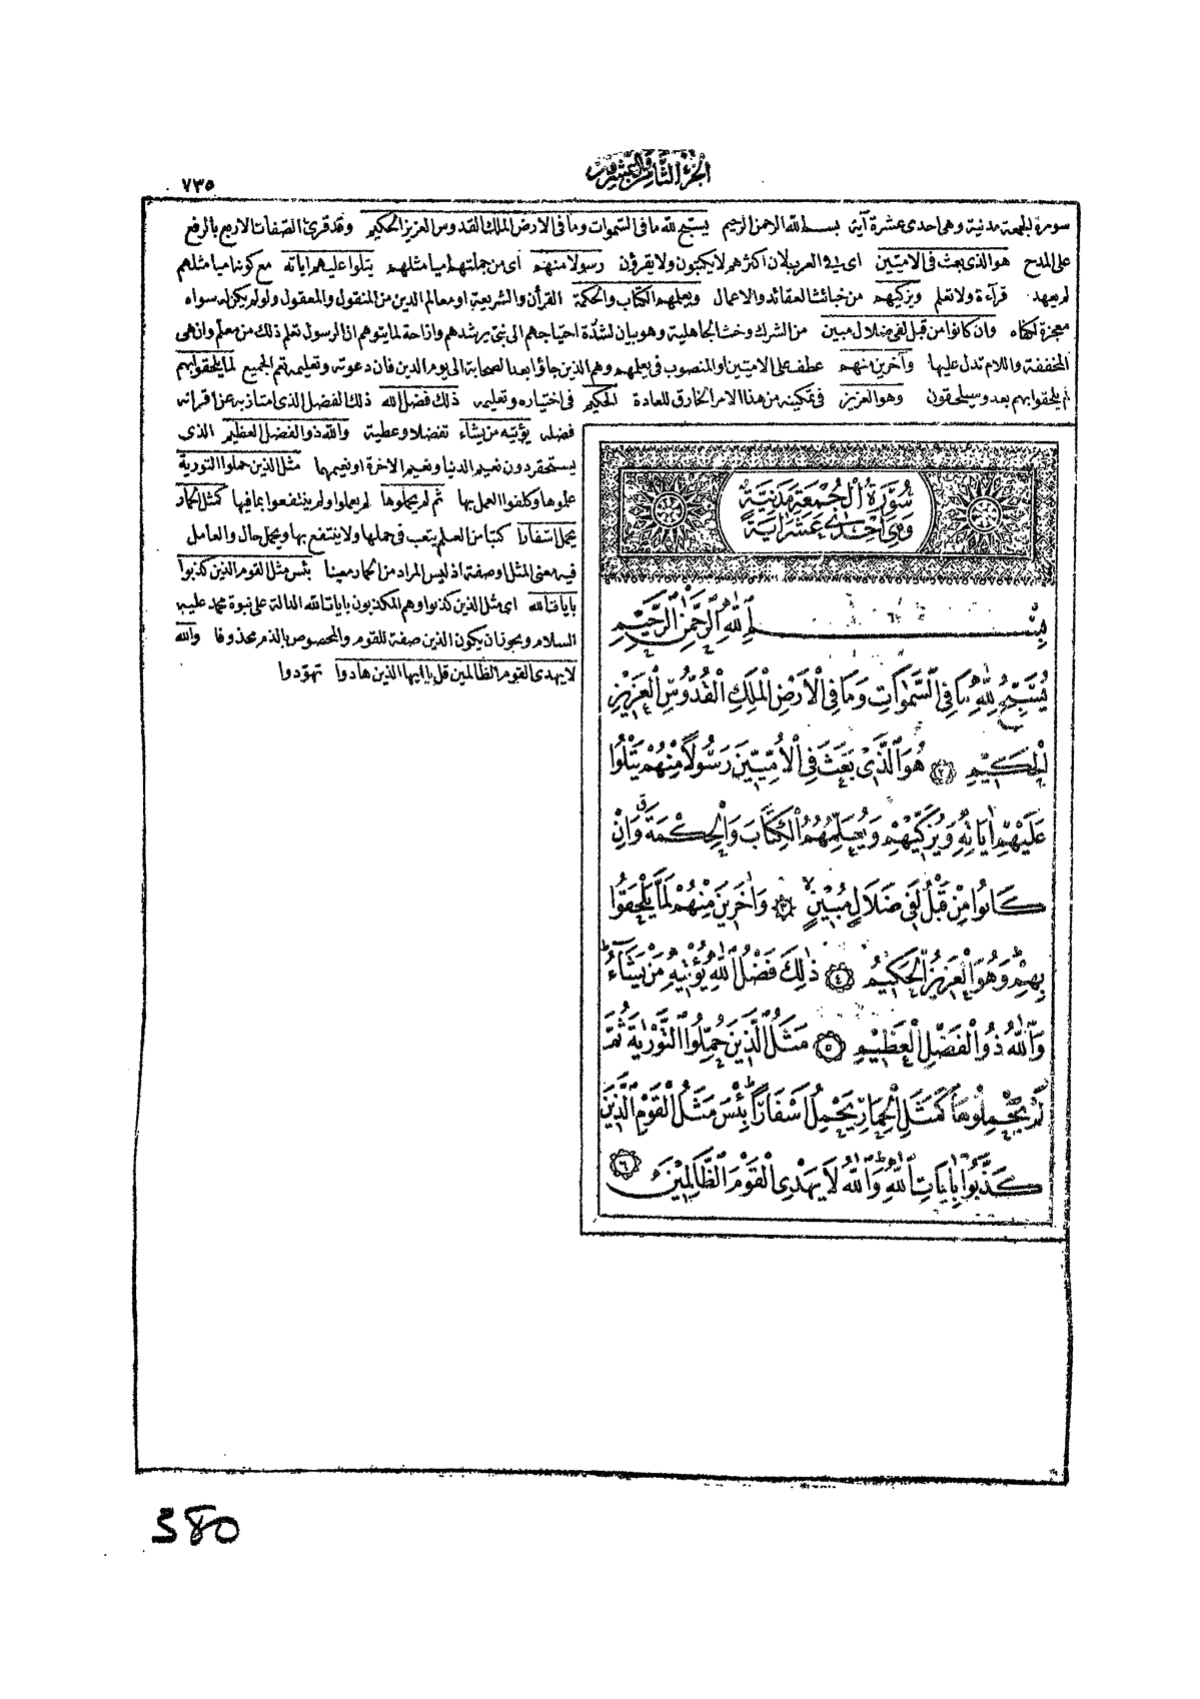 الجزء الثامن والعشرون
٧٣٥
سورة الجمعة مدنية وهى احدى عشرة آية بسم الله الرحمن الرحيم يسبح لله ما فى السموات وما فى الارض الملك القدوس العزيز الحكيم وقد قرئ الصفات الاربع بالرفع
على المدح هو الذى بعث فى الاميين اى فى العرب لان اكثرهم لا يكتبون ولا يقرؤن رسولا منهم اى من جملتهم اميا مثلهم يتلوا عليهم اياته مع كونه اميا مثلهم
لم يعهد قرآءة ولا تعلم ويزكيهم من خبائث العقائد والاعمال ويعلمهم الكتاب والحكمة القرآن والشريعة او معالم الدين من المنقول والمعقول ولو لم يكن له سواه
معجزة لكفاه وان كانوا من قبل لفى ضلال مبين من الشرك وخبث الجاهلية وهو بيان لشدة احتياجهم الى نبى يرشدهم وازاحة لما يتوهم ان الرسول تعلم ذلك من معلم وان هى
المخففة واللام تدل عليها وآخرين منهم عطف على الاميين او المنصوب فى يعلمهم وهم الذين جاؤا بعد الصحابة الى يوم الدين فان دعوته وتعليمه تعم الجميع لما يلحقوا بهم
لم يلحقوا بهم بعد وسيلحقون وهو العزيز فى تمكينه من هذا الامر الخارق للعادة الحكيم فى اختياره وتعليمه ذلك فضل الله ذلك الفضل الذى امتاز به عن اقرانه
فضله يؤتيه من يشاء تفضلا وعطية والله ذو الفضل العظيم الذى
يستحقر دونه نعيم الدنيا ونعيم الاخرة او نعيمهما مثل الذين حملوا التورية
علموها وكلفوا العمل بها ثم لم يحملوها لم يعملوا ولم ينتفعوا بما فيها كمثل الحمار
يحمل اسفارا كتبا من العلم يتعب فى حملها ولا ينتفع بها ويحمل حال والعامل
فيه معنى المثل او صفة اذ ليس المراد من الحمار معينا بئس مثل القوم الذين كذبوا
بايات الله اى مثل الذين كذبوا وهم المكذبون بايات الله الدالة على نبوة محمد عليه
السلام ويجوز ان يكون الذين صفة للقوم والمخصوص بالذم محذوفا والله
لا يهدى القوم الظالمين قل يا ايها الذين هادوا تهودوا
سُورَةُ الْجُمُعَةِ مَدَنِيَّةٌ
وَهِىَ اِحْدٰى عَشَرَ اٰيَةً
بِسْمِ اللّٰهِ الرَّحْمٰنِ الرَّحِيمِ
يُسَبِّحُ لِلّٰهِ مَا فِى السَّمٰوَاتِ وَمَا فِى الْاَرْضِ الْمَلِكِ الْقُدُّوسِ الْعَزِيزِ
الْحَكِيمِ ٢ هُوَ الَّذِى بَعَثَ فِى الْاُمِّيِّينَ رَسُولًا مِنْهُمْ يَتْلُوا
عَلَيْهِمْ اٰيَاتِهِ وَيُزَكِّيهِمْ وَيُعَلِّمُهُمُ الْكِتَابَ وَالْحِكْمَةَ وَاِنْ
كَانُوا مِنْ قَبْلُ لَفِى ضَلَالٍ مُبِينٍ ٣ وَاٰخَرِينَ مِنْهُمْ لَمَّا يَلْحَقُوا
بِهِمْ وَهُوَ الْعَزِيزُ الْحَكِيمُ ٤ ذٰلِكَ فَضْلُ اللّٰهِ يُؤْتِيهِ مَنْ يَشَاءُ
وَاللّٰهُ ذُو الْفَضْلِ الْعَظِيمِ ٥ مَثَلُ الَّذِينَ حُمِّلُوا التَّوْرٰيةَ ثُمَّ
لَمْ يَحْمِلُوهَا كَمَثَلِ الْحِمَارِ يَحْمِلُ اَسْفَارًا بِئْسَ مَثَلُ الْقَوْمِ الَّذِينَ
كَذَّبُوا بِاٰيَاتِ اللّٰهِ وَاللّٰهُ لَا يَهْدِى الْقَوْمَ الظَّالِمِينَ ٦
380